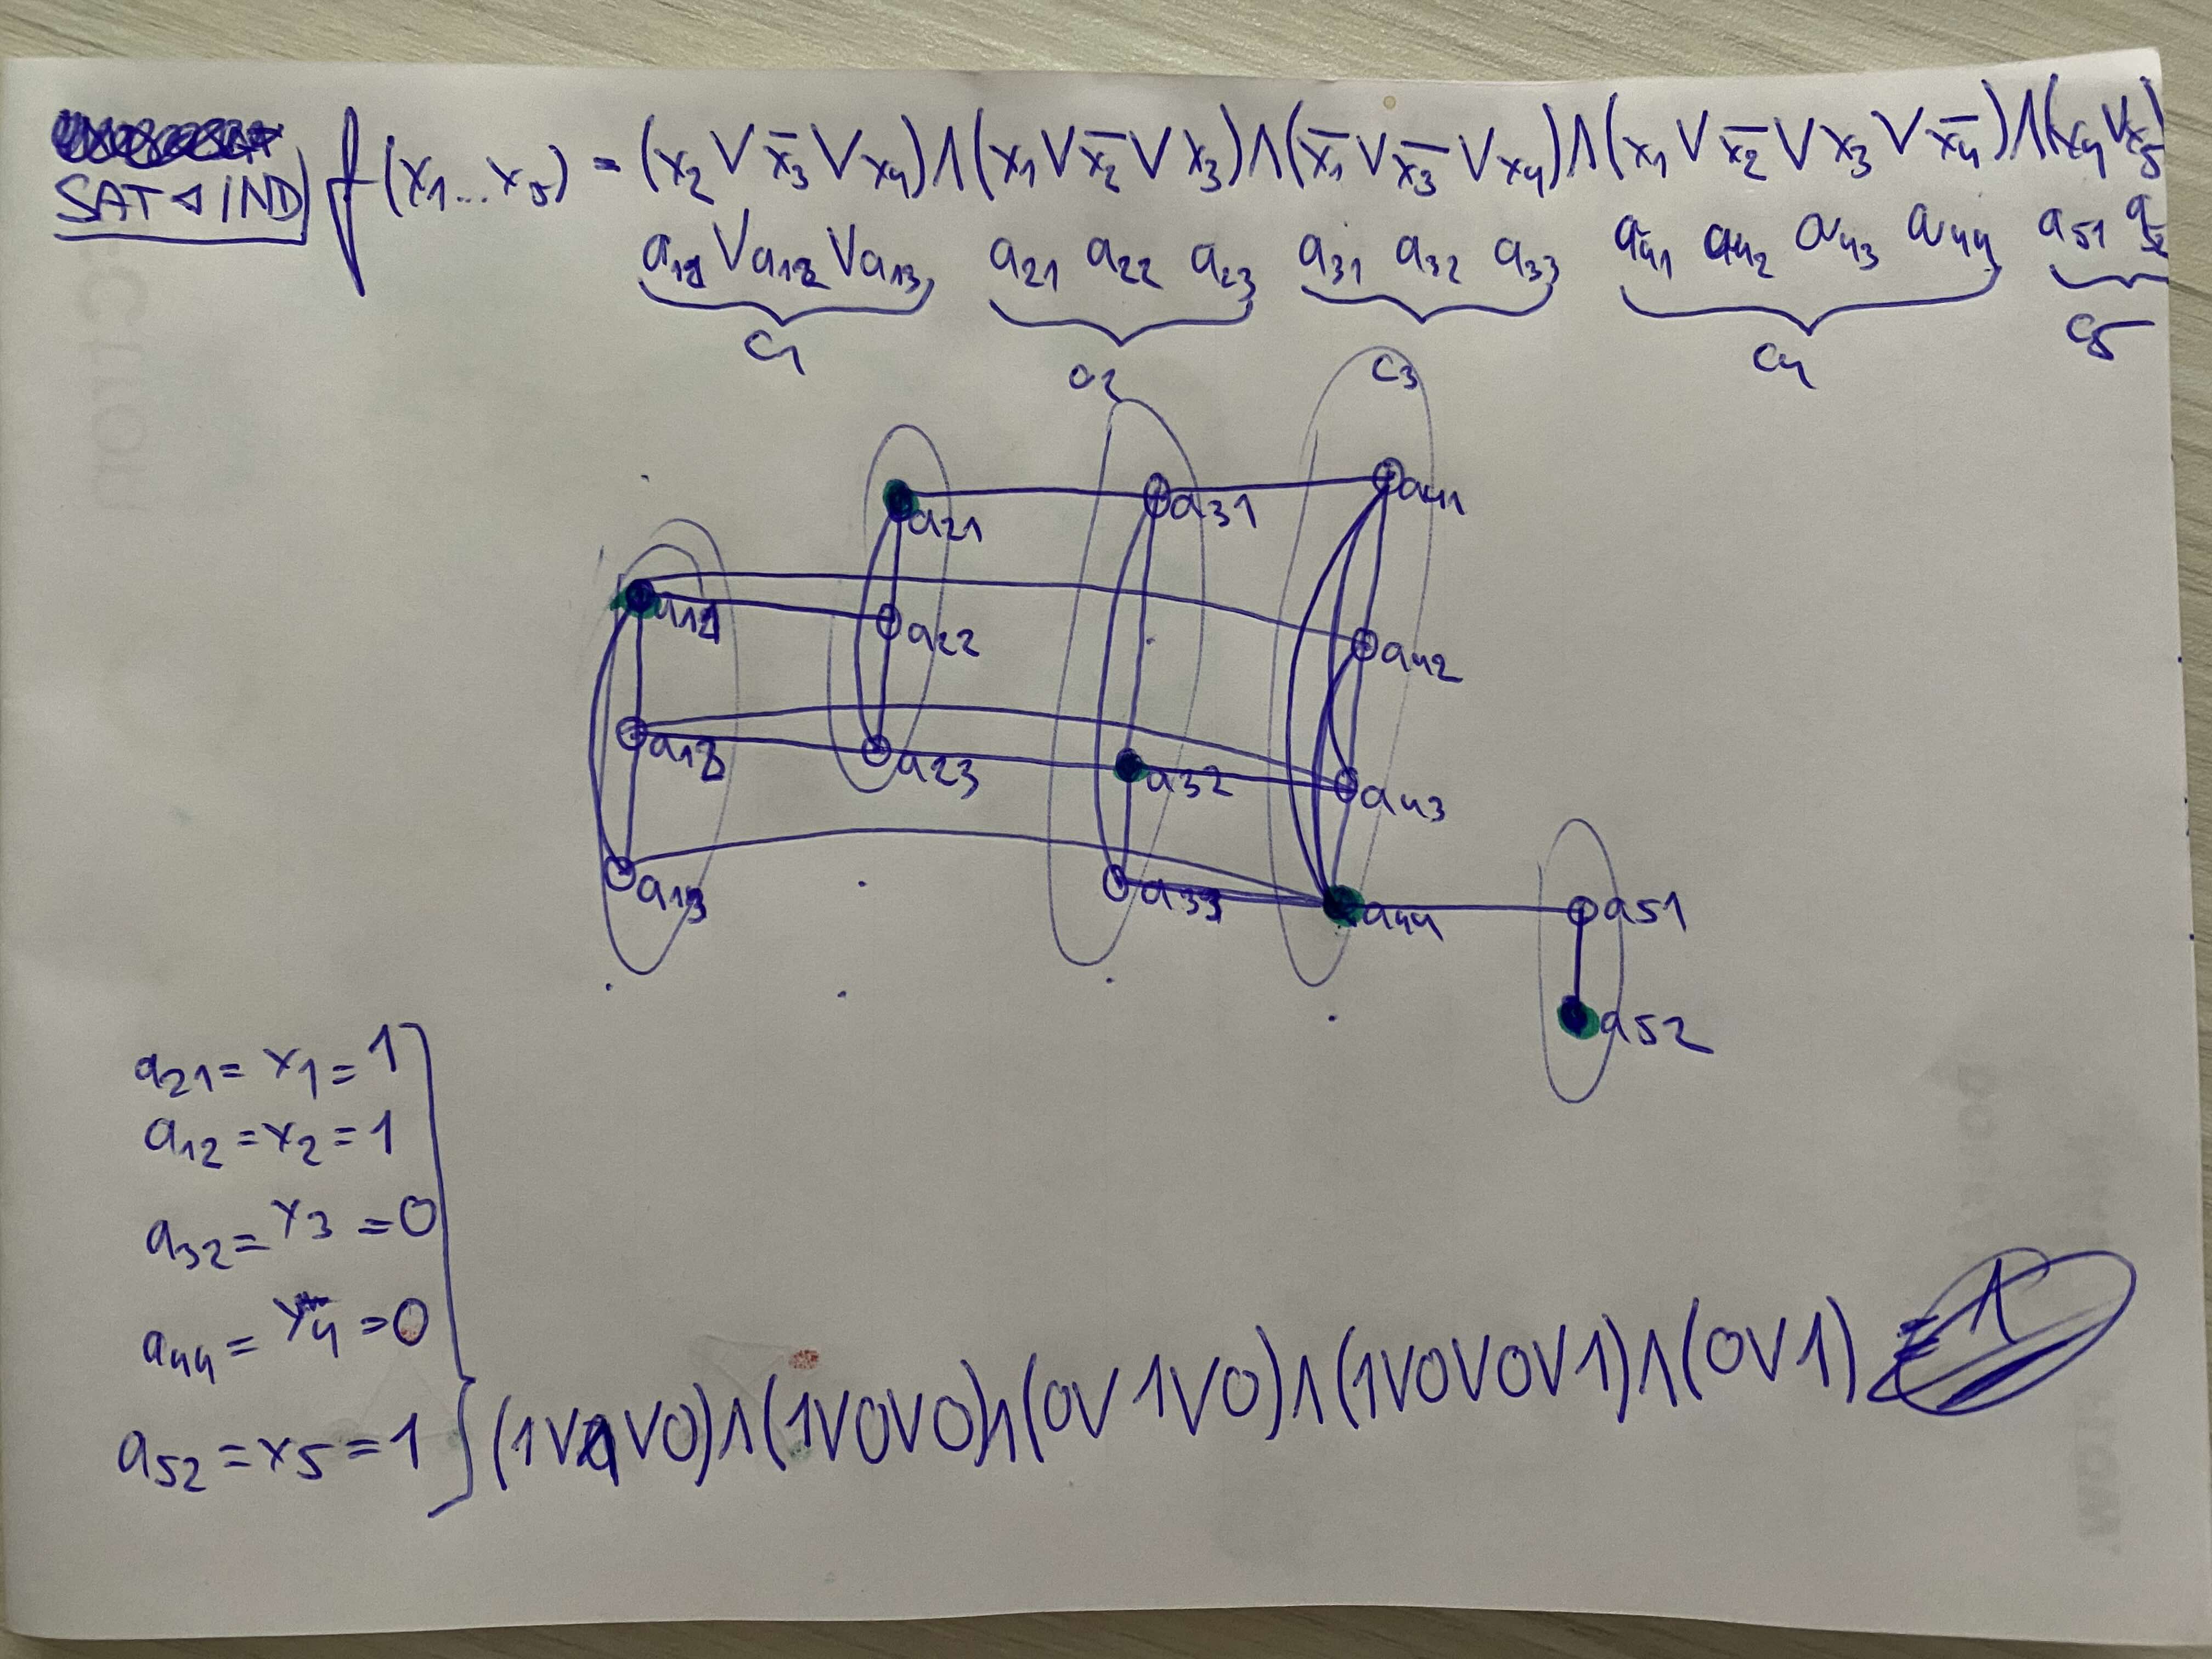 SAT ◁ IND f(x₁...x₅) = (x₂ ∨ x̄₃ ∨ x₄) ∧ (x₁ ∨ x̄₂ ∨ x₃) ∧ (x̄₁ ∨ x̄₃ ∨ x₄) ∧ (x₁ ∨ x̄₂ ∨ x₃ ∨ x̄₄) ∧ (x₄ ∨ x₅)
a₁₁ ∨ a₁₂ ∨ a₁₃ a₂₁ a₂₂ a₂₃ a₃₁ a₃₂ a₃₃ a₄₁ a₄₂ a₄₃ a₄₄ a₅₁ a₅₂
C₁ C₂ C₃ C₄ C₅
a₂₁ a₃₁ a₄₁
a₁₁ a₂₂ a₄₂
a₁₂ a₂₃ a₃₂ a₄₃
a₁₃ a₃₃ a₄₄ a₅₁
a₅₂
a₂₁ = x₁ = 1
a₁₂ = x₂ = 1
a₃₂ = x₃ = 0
a₄₄ = x₄ = 0
a₅₂ = x₅ = 1 } (1∨1∨0) ∧ (1∨0∨0) ∧ (0∨1∨0) ∧ (1∨0∨0∨1) ∧ (0∨1) = 1